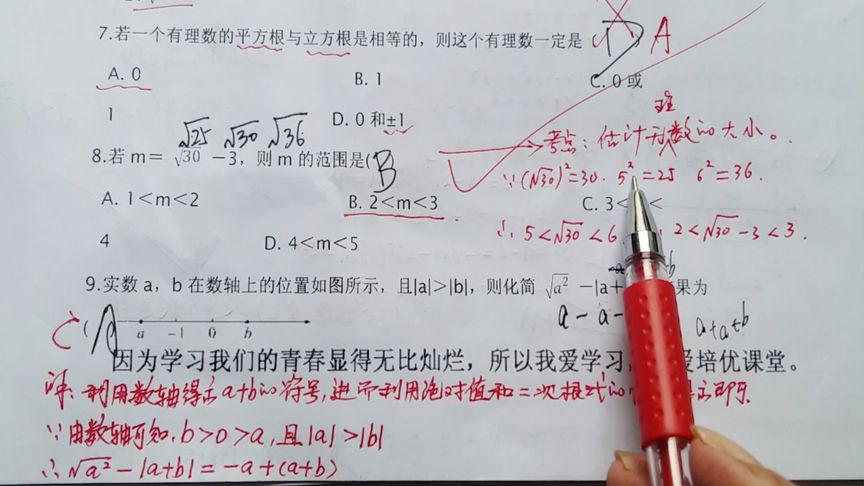 7.若一个有理数的平方根与立方根是相等的，则这个有理数一定是( D ) A
A. 0
B. 1
C. 0或
1
D. 0和±1
√25 √30 √36
考点：估计无理数的大小。
8.若 m = √30 －3，则 m 的范围是( B
∵ (√30)²=30. 5²=25 6²=36.
A. 1＜m＜2
B. 2＜m＜3
C. 3＜
4
D. 4＜m＜5
∴ 5<√30<6 2<√30-3<3.
9.实数 a，b 在数轴上的位置如图所示，且|a|＞|b|，则化简 √a² －|a+ 果为
a - a - a+a+b
C ( A
a -1 0 b
因为学习我们的青春显得无比灿烂，所以我爱学习， 爱培优课堂。
解：利用数轴得出a+b的符号，进而利用绝对值和二次根式的 得出即可
∵由数轴可知，b>0>a，且|a|>|b|
∴√a²-|a+b|=-a+(a+b)